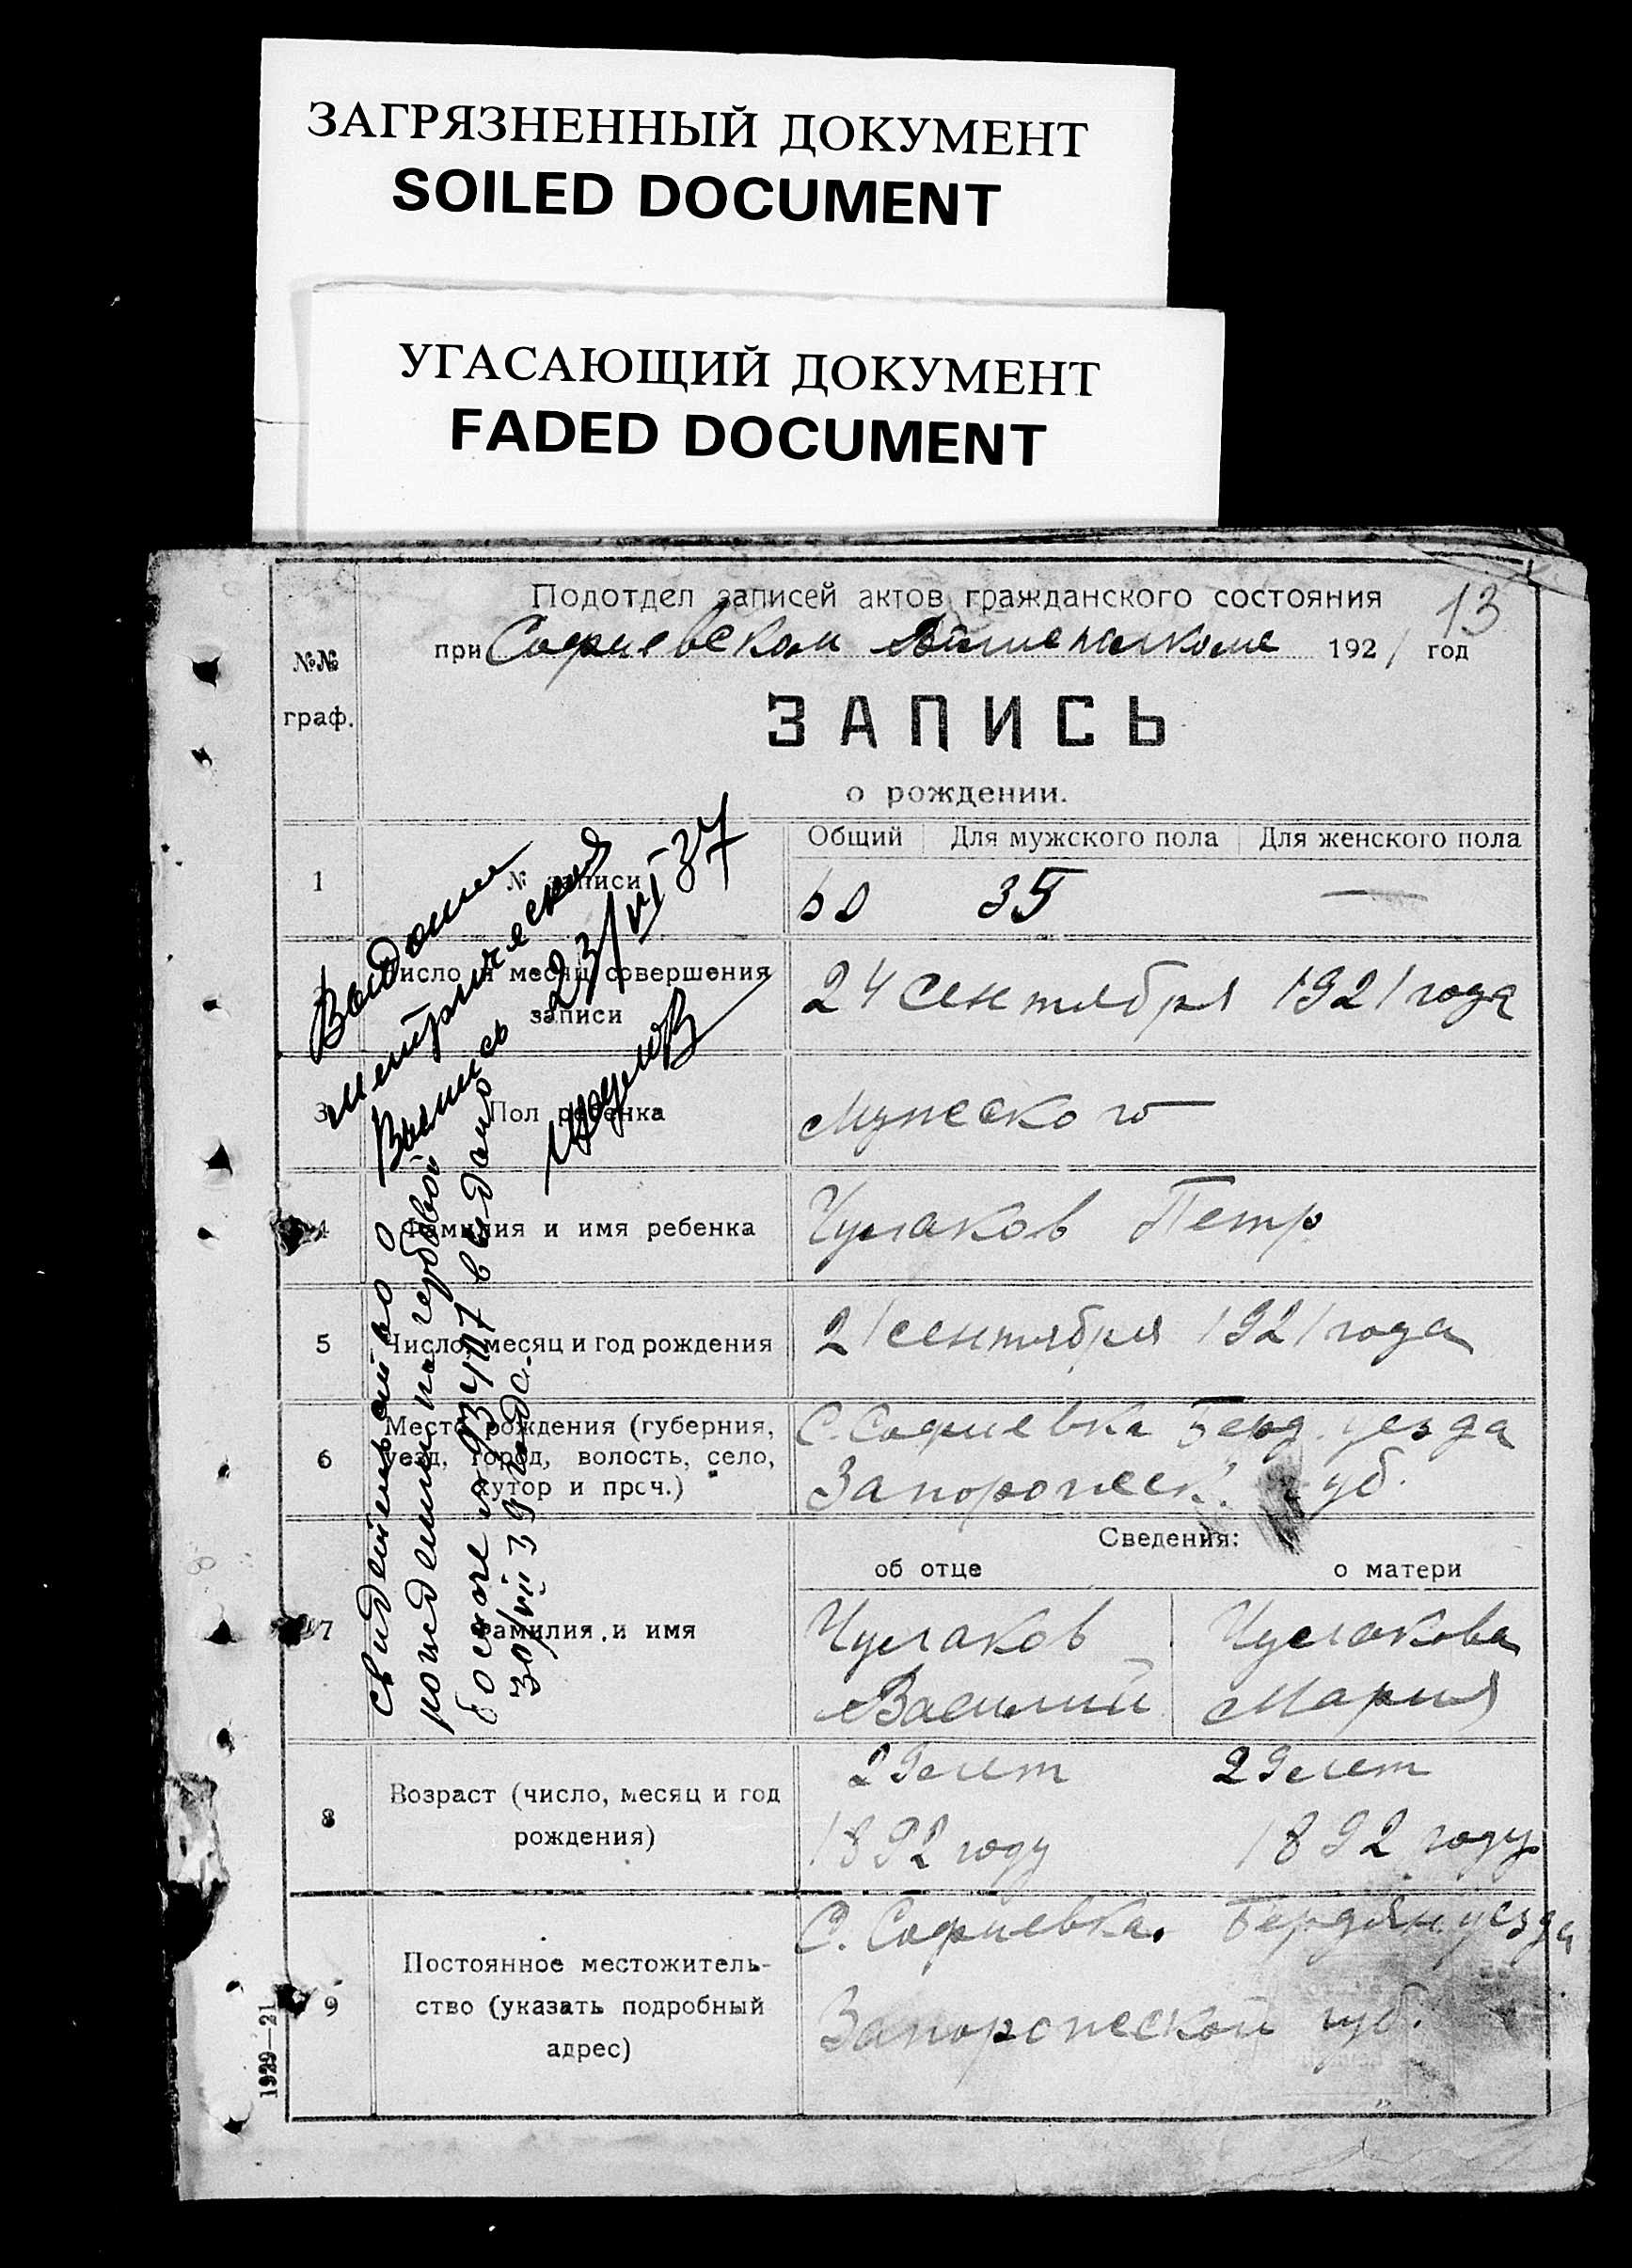 ЗАГРЯЗНЕННЫЙ ДОКУМЕНТ
SOILED DOCUMENT
УГАСАЮЩИЙ ДОКУМЕНТ
FADED DOCUMENT
13
Подотдел записей актов гражданского состояния
при Софиевском 1921 год
№№
граф.
ЗАПИСЬ
о рождении.
Общий Для мужского пола Для женского пола
1 № записи 60 35 —
Число и месяц совершения
записи
24 сентября 1921 года
3 Пол ребенка Мужеского
4 Фамилия и имя ребенка Чумаков Петр
5 Число, месяц и год рождения 21 сентября 1921 года
6 Место рождения (губерния,
уезд, город, волость, село,
хутор и проч.)
С. Софиевка Берд. уезда
Запорожск. губ.
Сведения:
об отце о матери
7 Фамилия и имя
Чумаков Чумакова
Василий Мария
8 Возраст (число, месяц и год
рождения)
29 лет 29 лет
1892 году 1892 году
9 Постоянное местожитель-
ство (указать подробный
адрес)
С. Софиевка. Бердян уезда
Запорожской губ.
1929—21
Выдана
метрическая
выпись 23/VI-37
свидетельство о
рождении на гербовой
выдано
30/VII 39 года.